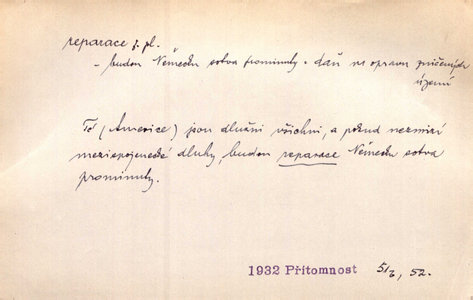 reparace ž. pl.
- budou Německu sotva prominuty - daň na opravu zničených
území
Té (Americe) jsou dlužni všichni, a pokud nezmizí
mezispojenecké dluhy, budou reparace Německu sotva
prominuty.
1932 Přítomnost 51/2, 52.